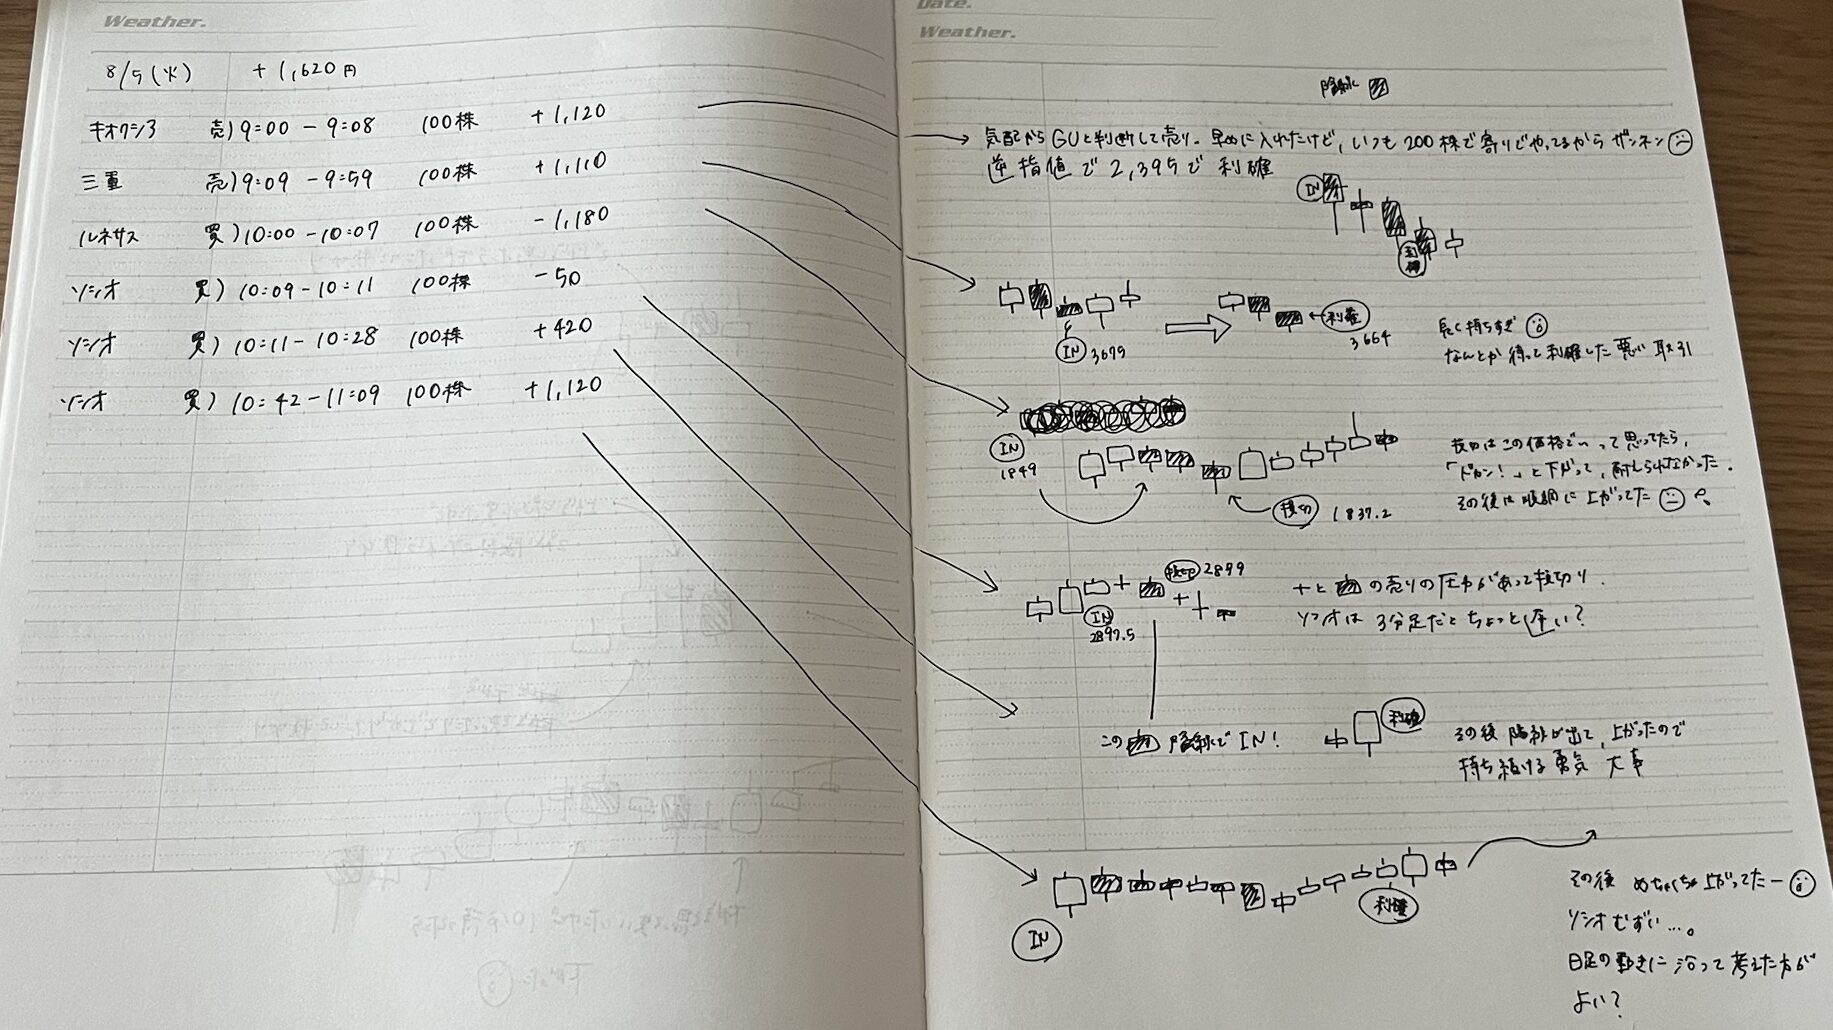 Weather.
8/5(火) +1,620円
キオクシア 売)9:00-9:08 100株 +1,120
三重 売)9:09-9:59 100株 +1,110
ルネサス 買)10:00-10:07 100株 -1,180
ソシオ 買)10:09-10:11 100株 -50
ソシオ 買)10:11-10:28 100株 +420
ソシオ 買)10:42-11:09 100株 +1,120
Date.
Weather.
陰線に
気配からGUと判断して売り。早めに入れたけど、いつも200株で寄りでやってるからザンネン
逆指値で2,395で利確
IN
利確
IN 3675
利確
3664
長く持ちすぎ
なんとか待って利確した悪い取引
IN
1849
損切 1837.2
損切はこの価格でいって思ってたら、
「ドカン!」と下がって、耐えられなかった。
その後は順調に上がってた
損切 2899
IN
2897.5
+との売りの圧力があって損切り。
ソシオは3分足だとちょっと早い?
この陰線でIN!
利確
その後陰線が出て、上がったので
持ち続ける勇気 大事
IN
利確
その後 めちゃくちゃ上がってたー
ソシオむずい…。
日足の動きに沿って考えた方が
よい?